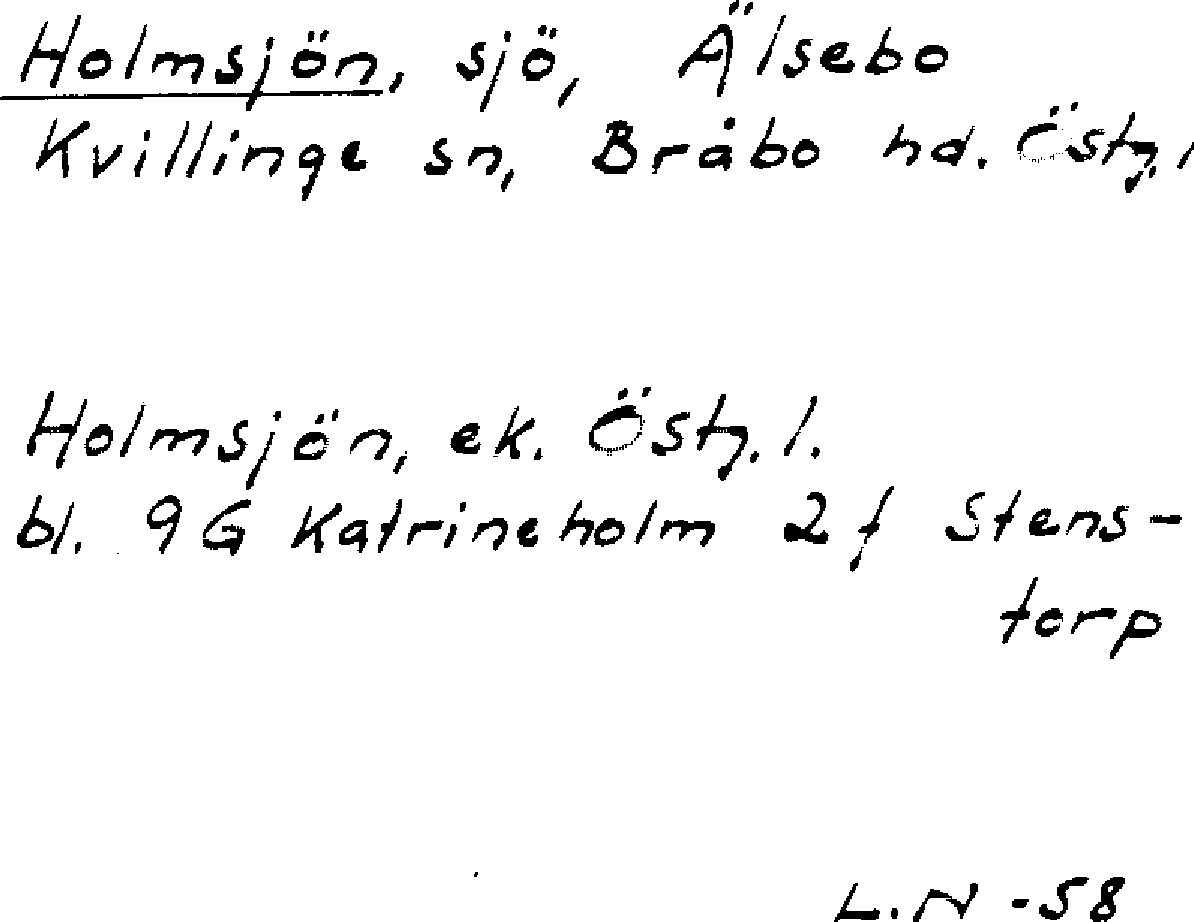 Holmsjön, sjö, Älsebo
Kvillinge sn, Bråbo hd. Östg. l
Holmsjön, ek. Östg. l.
bl. 9G Katrineholm 2f Stens-
torp
L.N -58